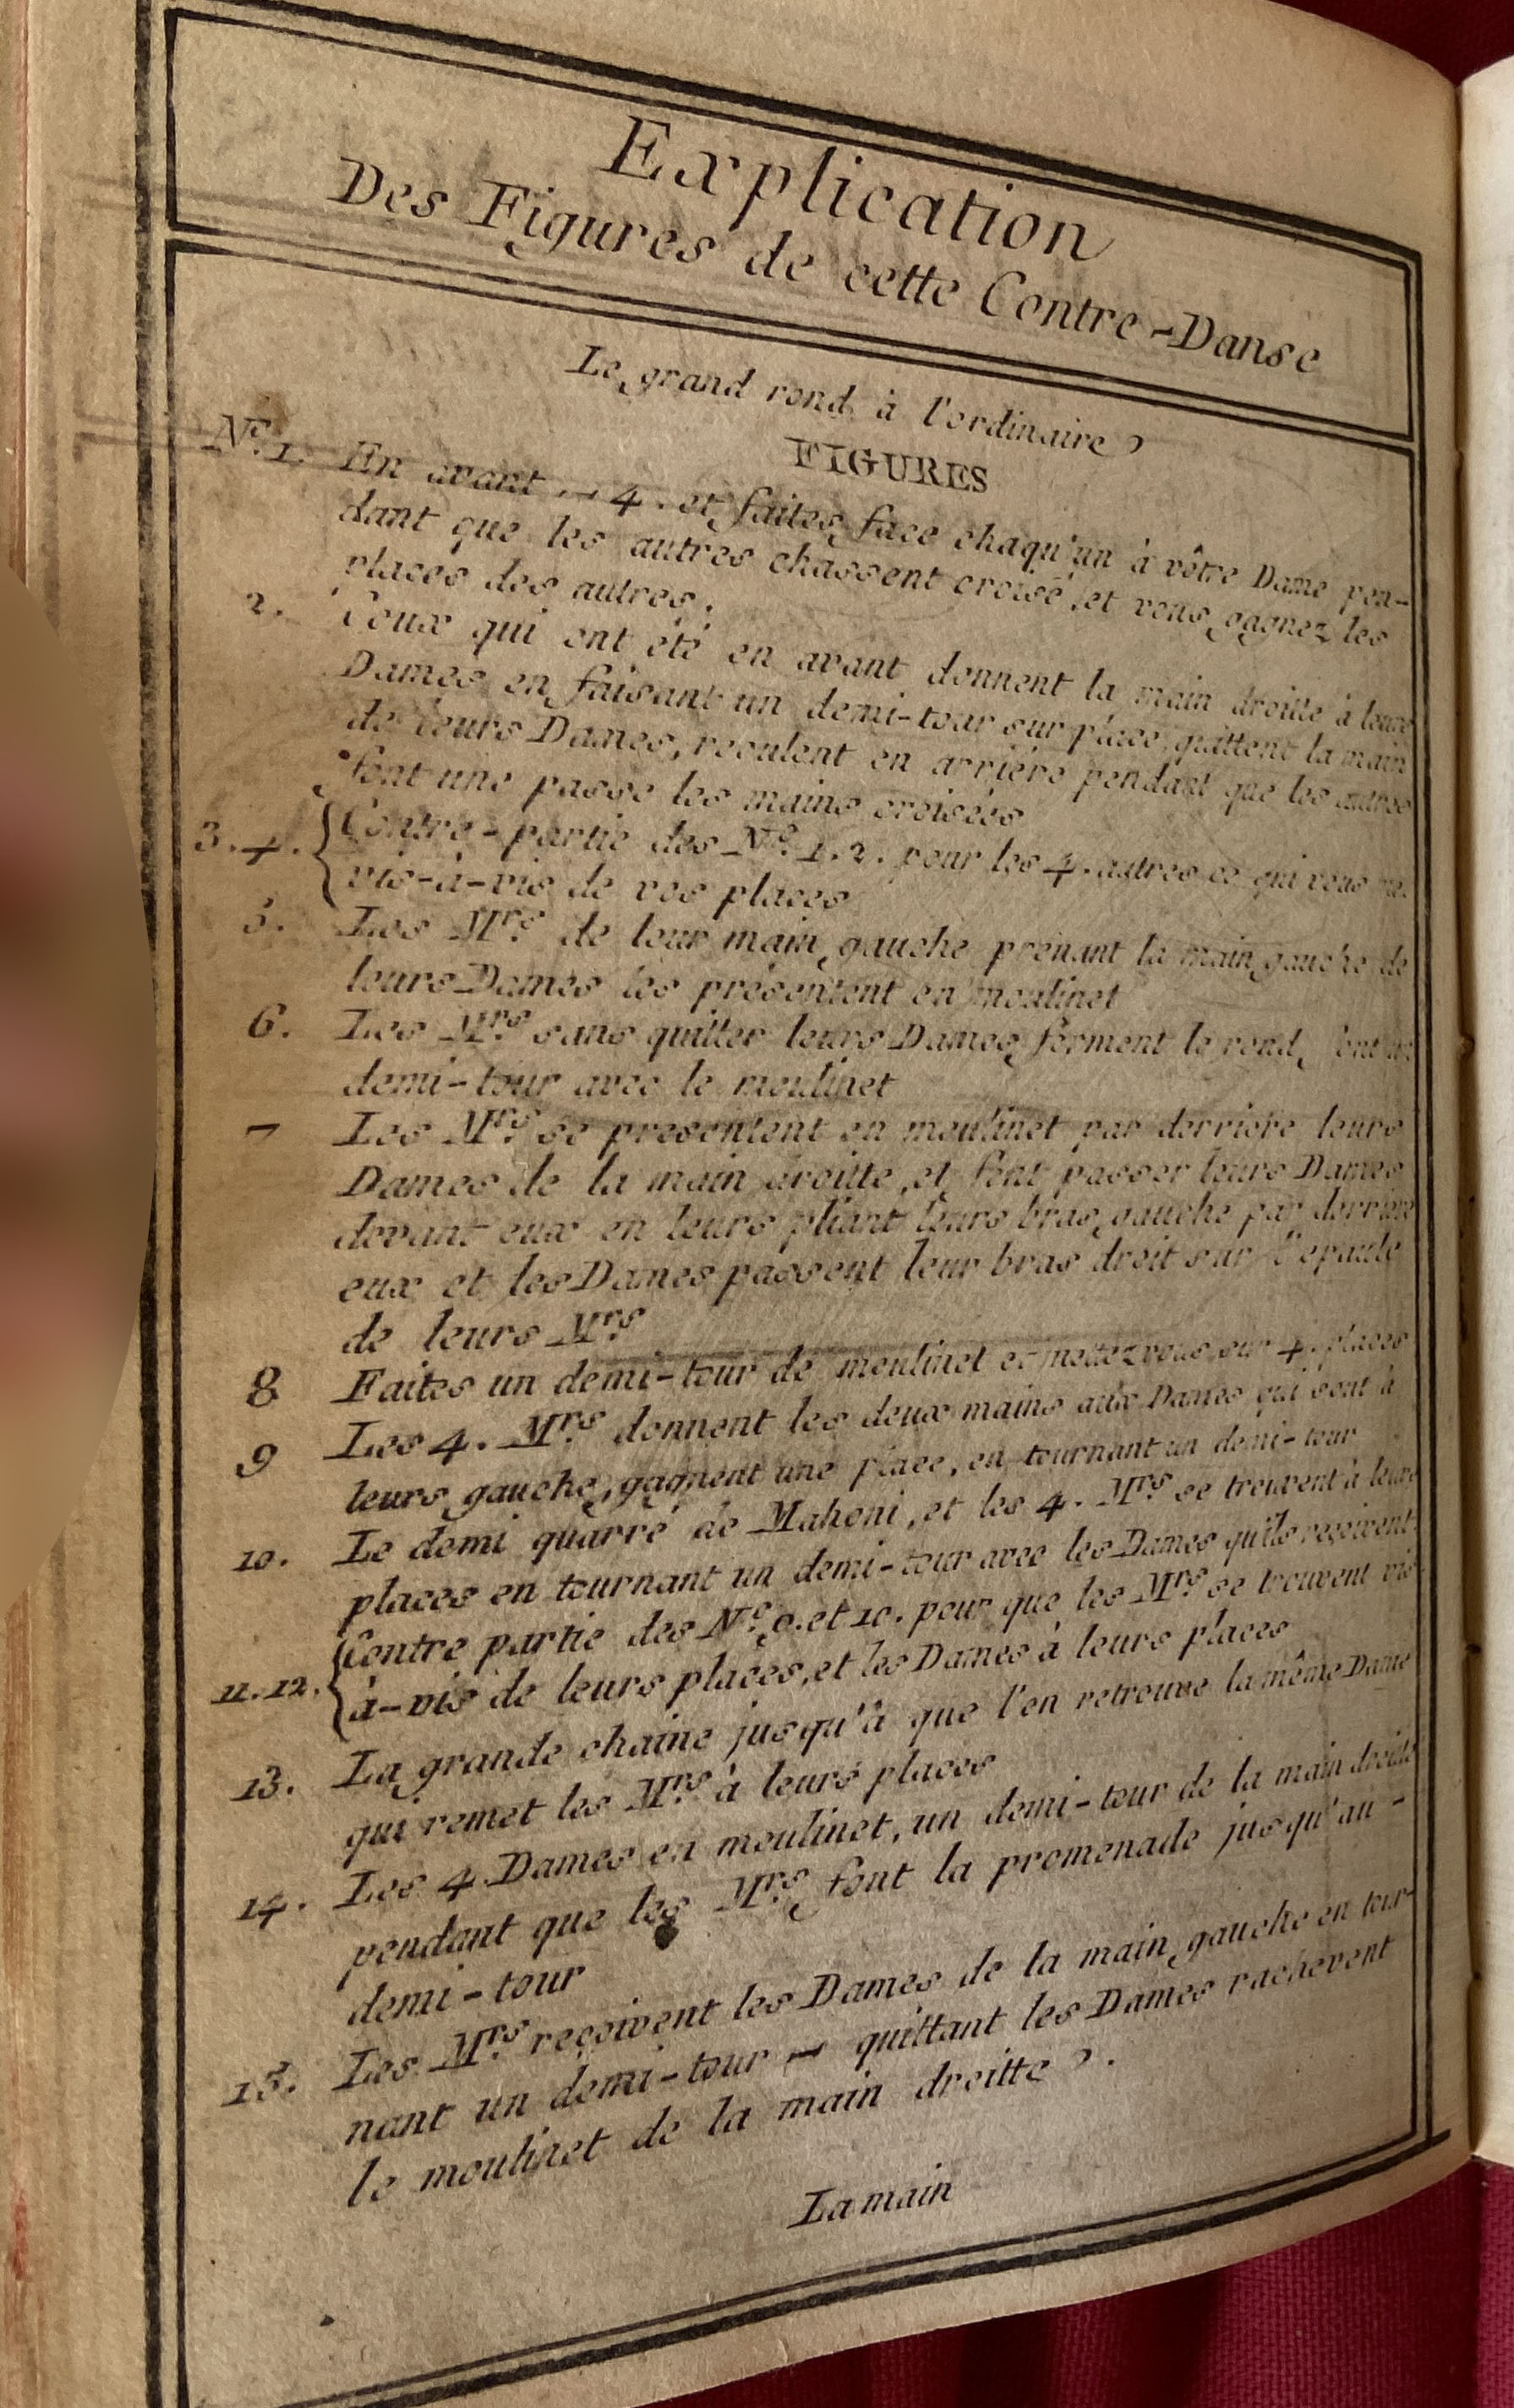 Explication
Des Figures de cette Contre-Danse
Le grand rond à l'ordinaire
FIGURES
N.º 1. En avant 4. et faites face chaqu'un à vôtre Dame pen-
dant que les autres chassent croisé, et vous gagnez les
places des autres.
2. Ceux qui ont été en avant donnent la main droitte à leurs
Dames en faisant un demi-tour sur place, quittent la main
de leurs Dames, reculent en arriére pendant que les autres
font une passe les mains croisées
3. 4. Contre-partie des N.º 1. 2. pour les 4. autres ce qui vous met
vis-à-vis de vos places
5. Les M.rs de leur main gauche prenant la main gauche de
leurs Dames les présentent en moulinet
6. Les M.rs sans quitter leurs Dames forment le rond, font un
demi-tour avec le moulinet
7 Les M.rs se presentent en moulinet par derriere leurs
Dames de la main droitte, et font passer leurs Dames
devant eux en leurs pliant leurs bras gauche par derriere
eux et les Dames passent leur bras droit sur l'epaule
de leurs M.rs
8 Faites un demi-tour de moulinet et mettez vous sur 4. places
9 Les 4. M.rs donnent les deux mains aux Dames qui sont à
leurs gauche, gagnent une place, en tournant un demi-tour
10. Le demi quarré de Mahoni, et les 4. M.rs se trouvent à leurs
places en tournant un demi-tour avec les Dames qu'ils reçoivent
11. 12. Contre partie des N.º 9. et 10. pour que les M.rs se trouvent vis
à-vis de leurs places, et les Dames à leurs places
13. La grande chaine jusqu'à que l'on retrouve la même Dame
qui remet les M.rs à leurs places
14. Les 4 Dames en moulinet, un demi-tour de la main droitte
pendant que les M.rs font la promenade jusqu'au-
demi-tour
15. Les M.rs reçoivent les Dames de la main gauche en tour-
nant un demi-tour quittant les Dames rachevent
le moulinet de la main droitte.
La main